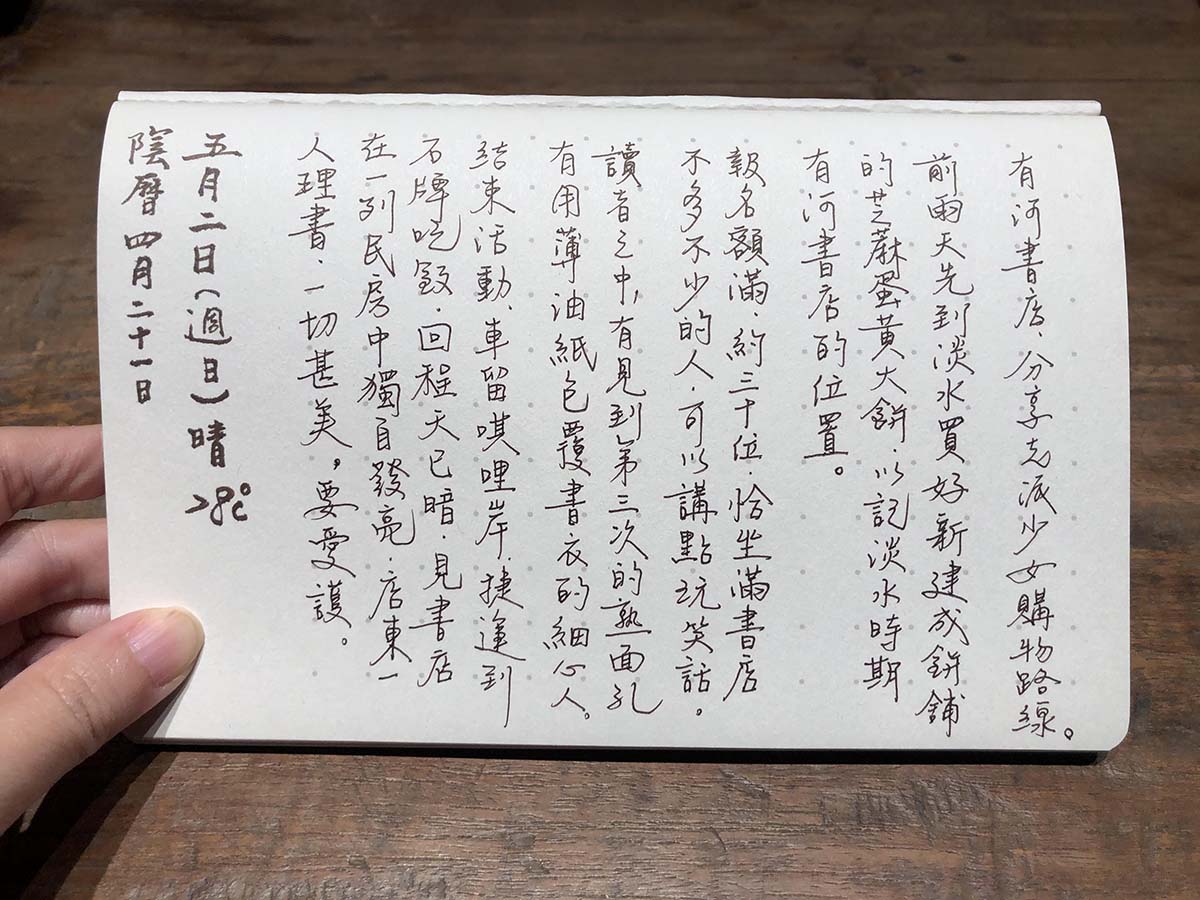 有河書店，分享老派少女購物路線。
前兩天先到淡水買好新建成餅舖
的芝蔴蛋黃大餅，以記淡水時期
有河書店的位置。
報名額滿，約三十位，恰坐滿書店
不多不少的人，可以講點玩笑話。
讀者之中，有見到第三次的熟面孔
有用薄油紙包覆書衣的細心人。
結束活動，車留唭哩岸，捷運到
石牌吃飯，回程天已暗，見書店
在一列民房中獨自發亮，店東一
人理書，一切甚美，要愛護。
五月二日(週日)晴 28℃
陰曆四月二十一日